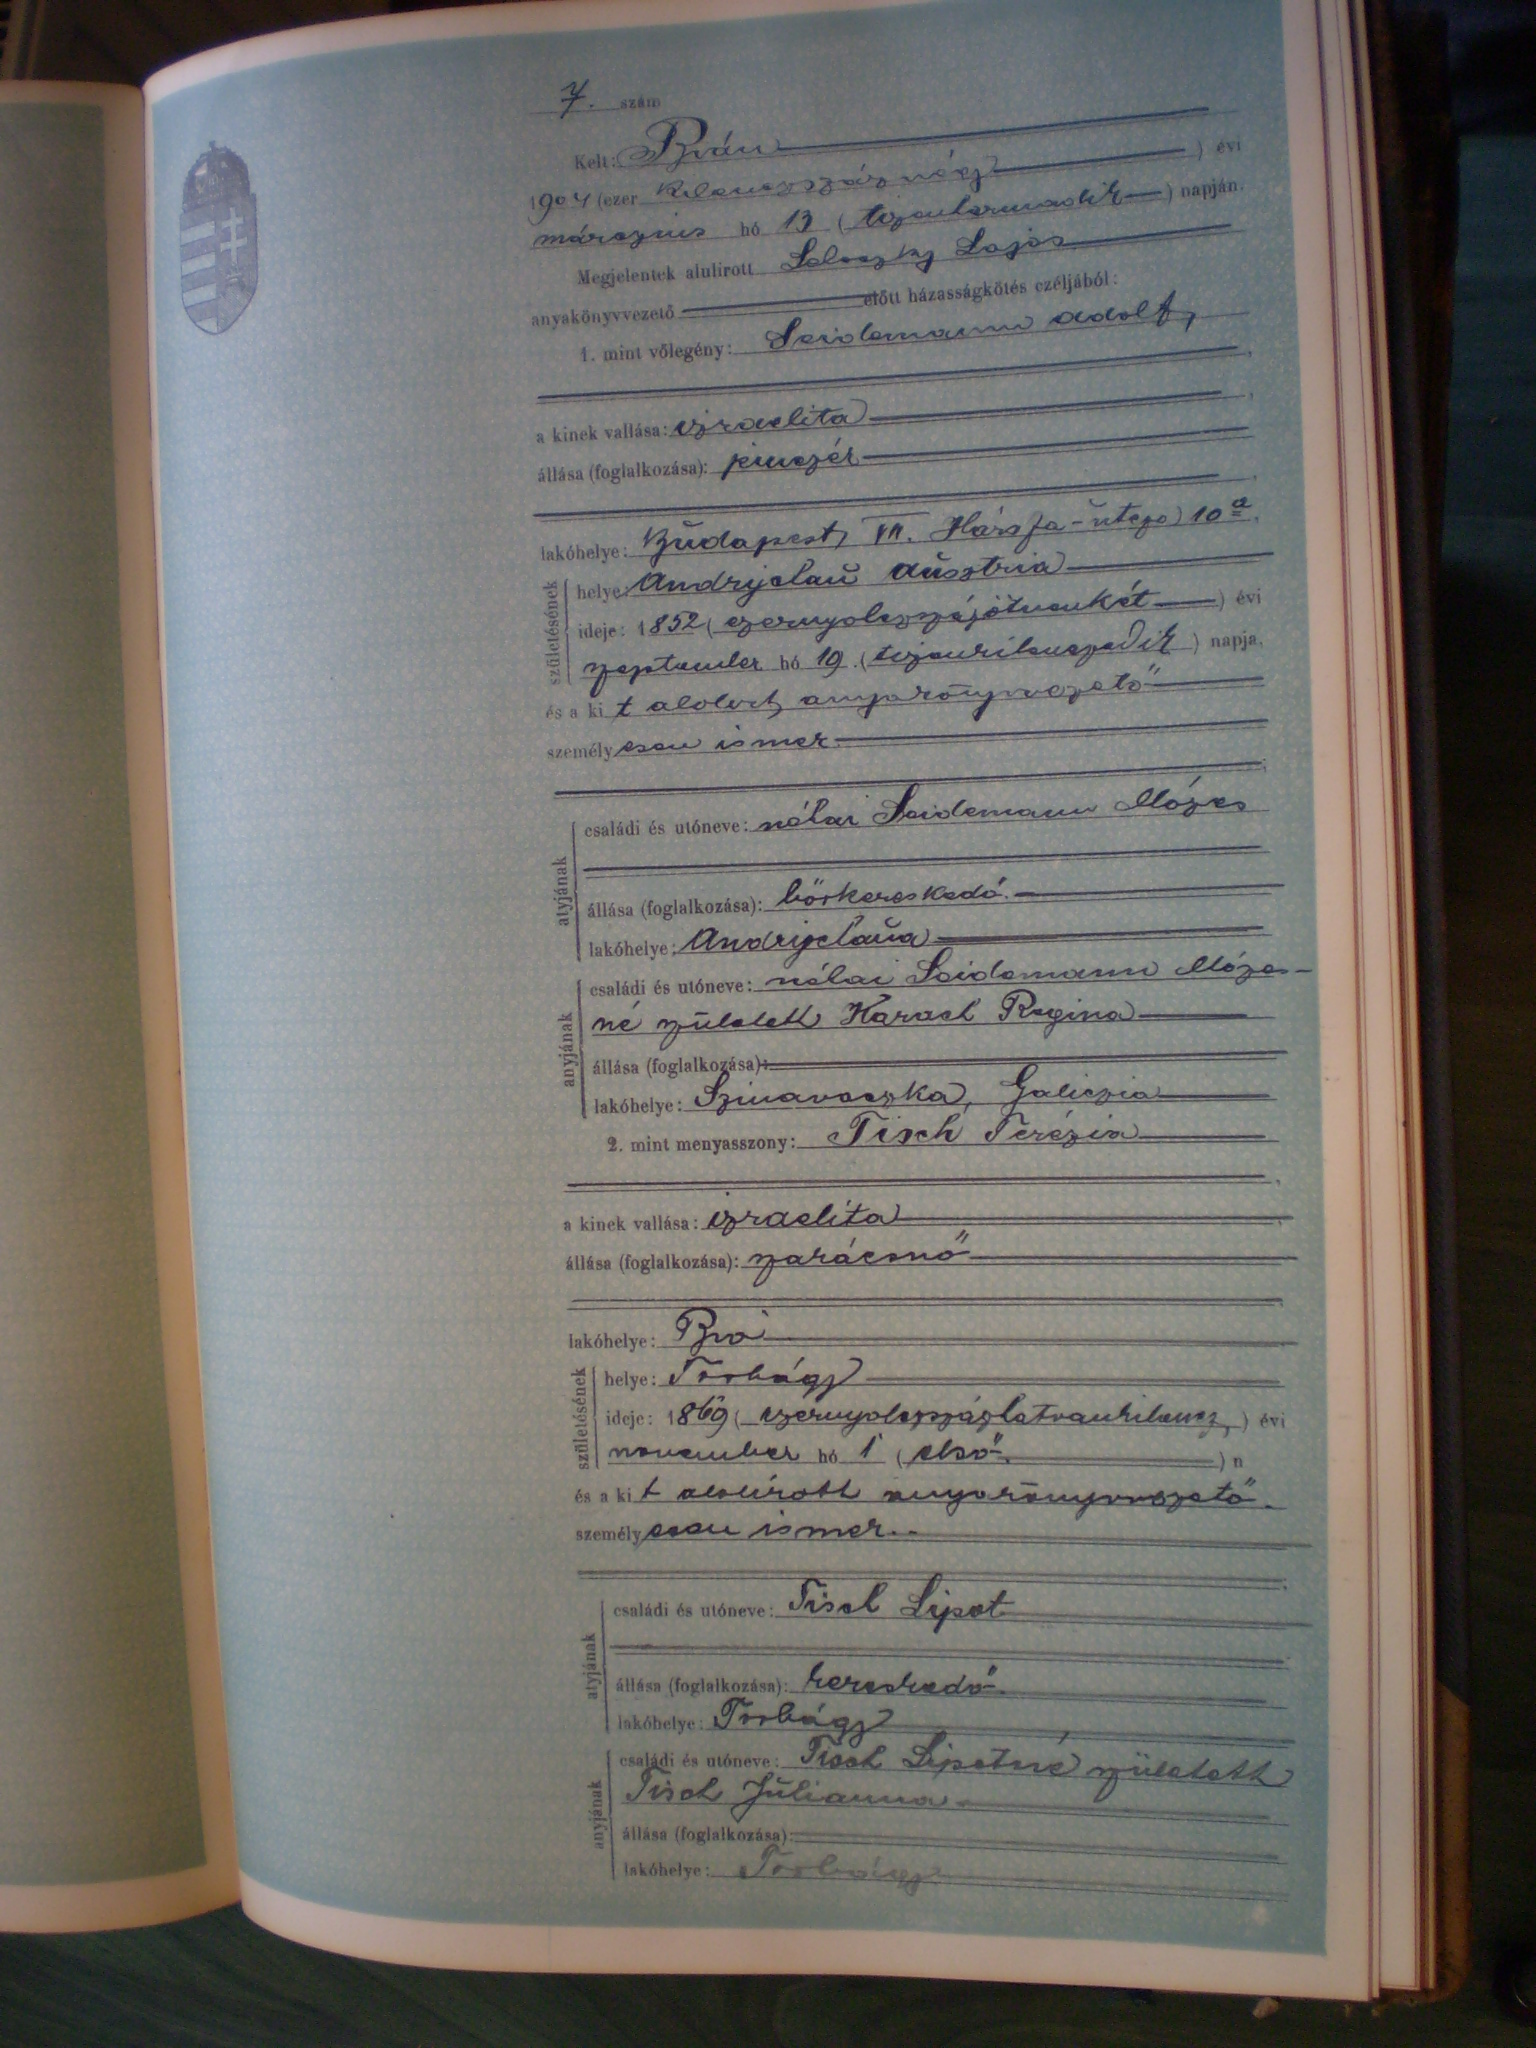 7. szám
Kelt: Bián
1904 (ezer kilenczszáz négy) évi
márczius hó 13 (tizenharmadik) napján.
Megjelentek alulírott Lajos
anyakönyvvezető előtt házasságkötés czéljából:
1. mint vőlegény: Seidemann Adolf,
a kinek vallása: izraelita
állása (foglalkozása): pinczér
lakóhelye: Budapest, VII. Hársfa-utcza 10 a.
születésének
helye: Ausztria
ideje: 1852 (ezernyolczszázötvenkét) évi
szeptember hó 19. (tizenkilenczedik) napja.
és a kit alolirt anyakönyvvezető
személyesen ismer.
atyjának
családi és utóneve: néhai Seidemann Mózes
állása (foglalkozása): bőrkereskedő.
lakóhelye:
anyjának
családi és utóneve: néhai Seidemann Mózes-
né született Regina
állása (foglalkozása):
lakóhelye: Galiczia
2. mint menyasszony: Tisch Terézia
a kinek vallása: izraelita
állása (foglalkozása): szakácsnő
lakóhelye: Bia
születésének
helye: Torbágy
ideje: 1869 (ezernyolczszázhatvankilencz) évi
november hó 1 (első.) n
és a kit alulírott anyakönyvvezető.
személyesen ismer.
atyjának
családi és utóneve: Tisch Lipot
állása (foglalkozása): kereskedő.
lakóhelye: Torbágy
anyjának
családi és utóneve: Tisch Lipotné született
Tisch Julianna
állása (foglalkozása):
lakóhelye: Torbágy